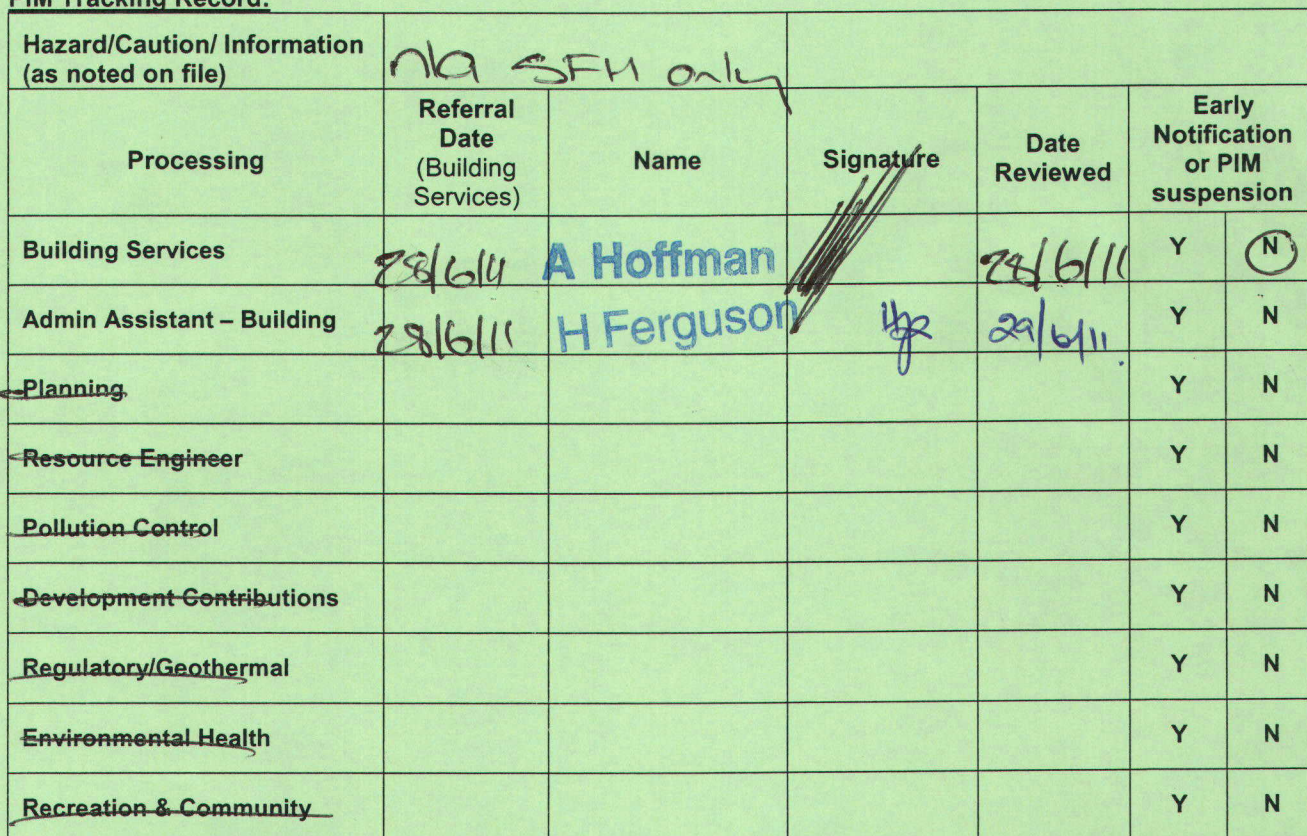 PIM Tracking Record:
Hazard/Caution/ Information
(as noted on file)
n/a SFH only
Processing
Referral
Date
(Building
Services)
Name
Signature
Date
Reviewed
Early
Notification
or PIM
suspension
Building Services
28/6/11
A Hoffman
28/6/11
Y
N
Admin Assistant – Building
28/6/11
H Ferguson
29/6/11.
Y
N
Planning
Y
N
Resource Engineer
Y
N
Pollution Control
Y
N
Development Contributions
Y
N
Regulatory/Geothermal
Y
N
Environmental Health
Y
N
Recreation & Community
Y
N